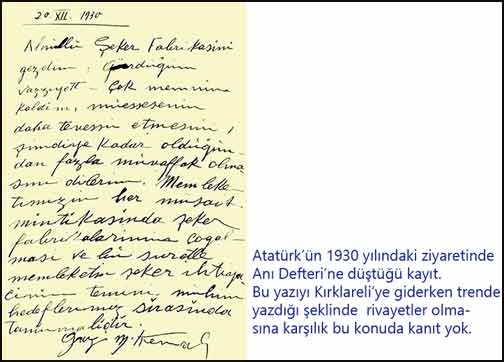 20. XII. 1930
Alpullu Şeker Fabrikasini
gezdim, Gördüğüm
vazıyett- Çok memnun
kaldim, müessesenin
daha tevessu etmesini,
şimdiye kadar olduğun-
dan fazla muvaffak olma-
sini dilerim. Memleke-
timizin her müsait
mintikasinda şeker
fabrikalarının çoğal-
ması ve bu suretle
memleketin şeker ihtiya-
cinin temini, mühim
hedeflerimiz sirasinda
tanınmalidir.
Gazi M. Kemal
Atatürk'ün 1930 yılındaki ziyaretinde
Anı Defteri'ne düştüğü kayıt.
Bu yazıyı Kırklareli'ye giderken trende
yazdığı şeklinde rivayetler olma-
sına karşılık bu konuda kanıt yok.